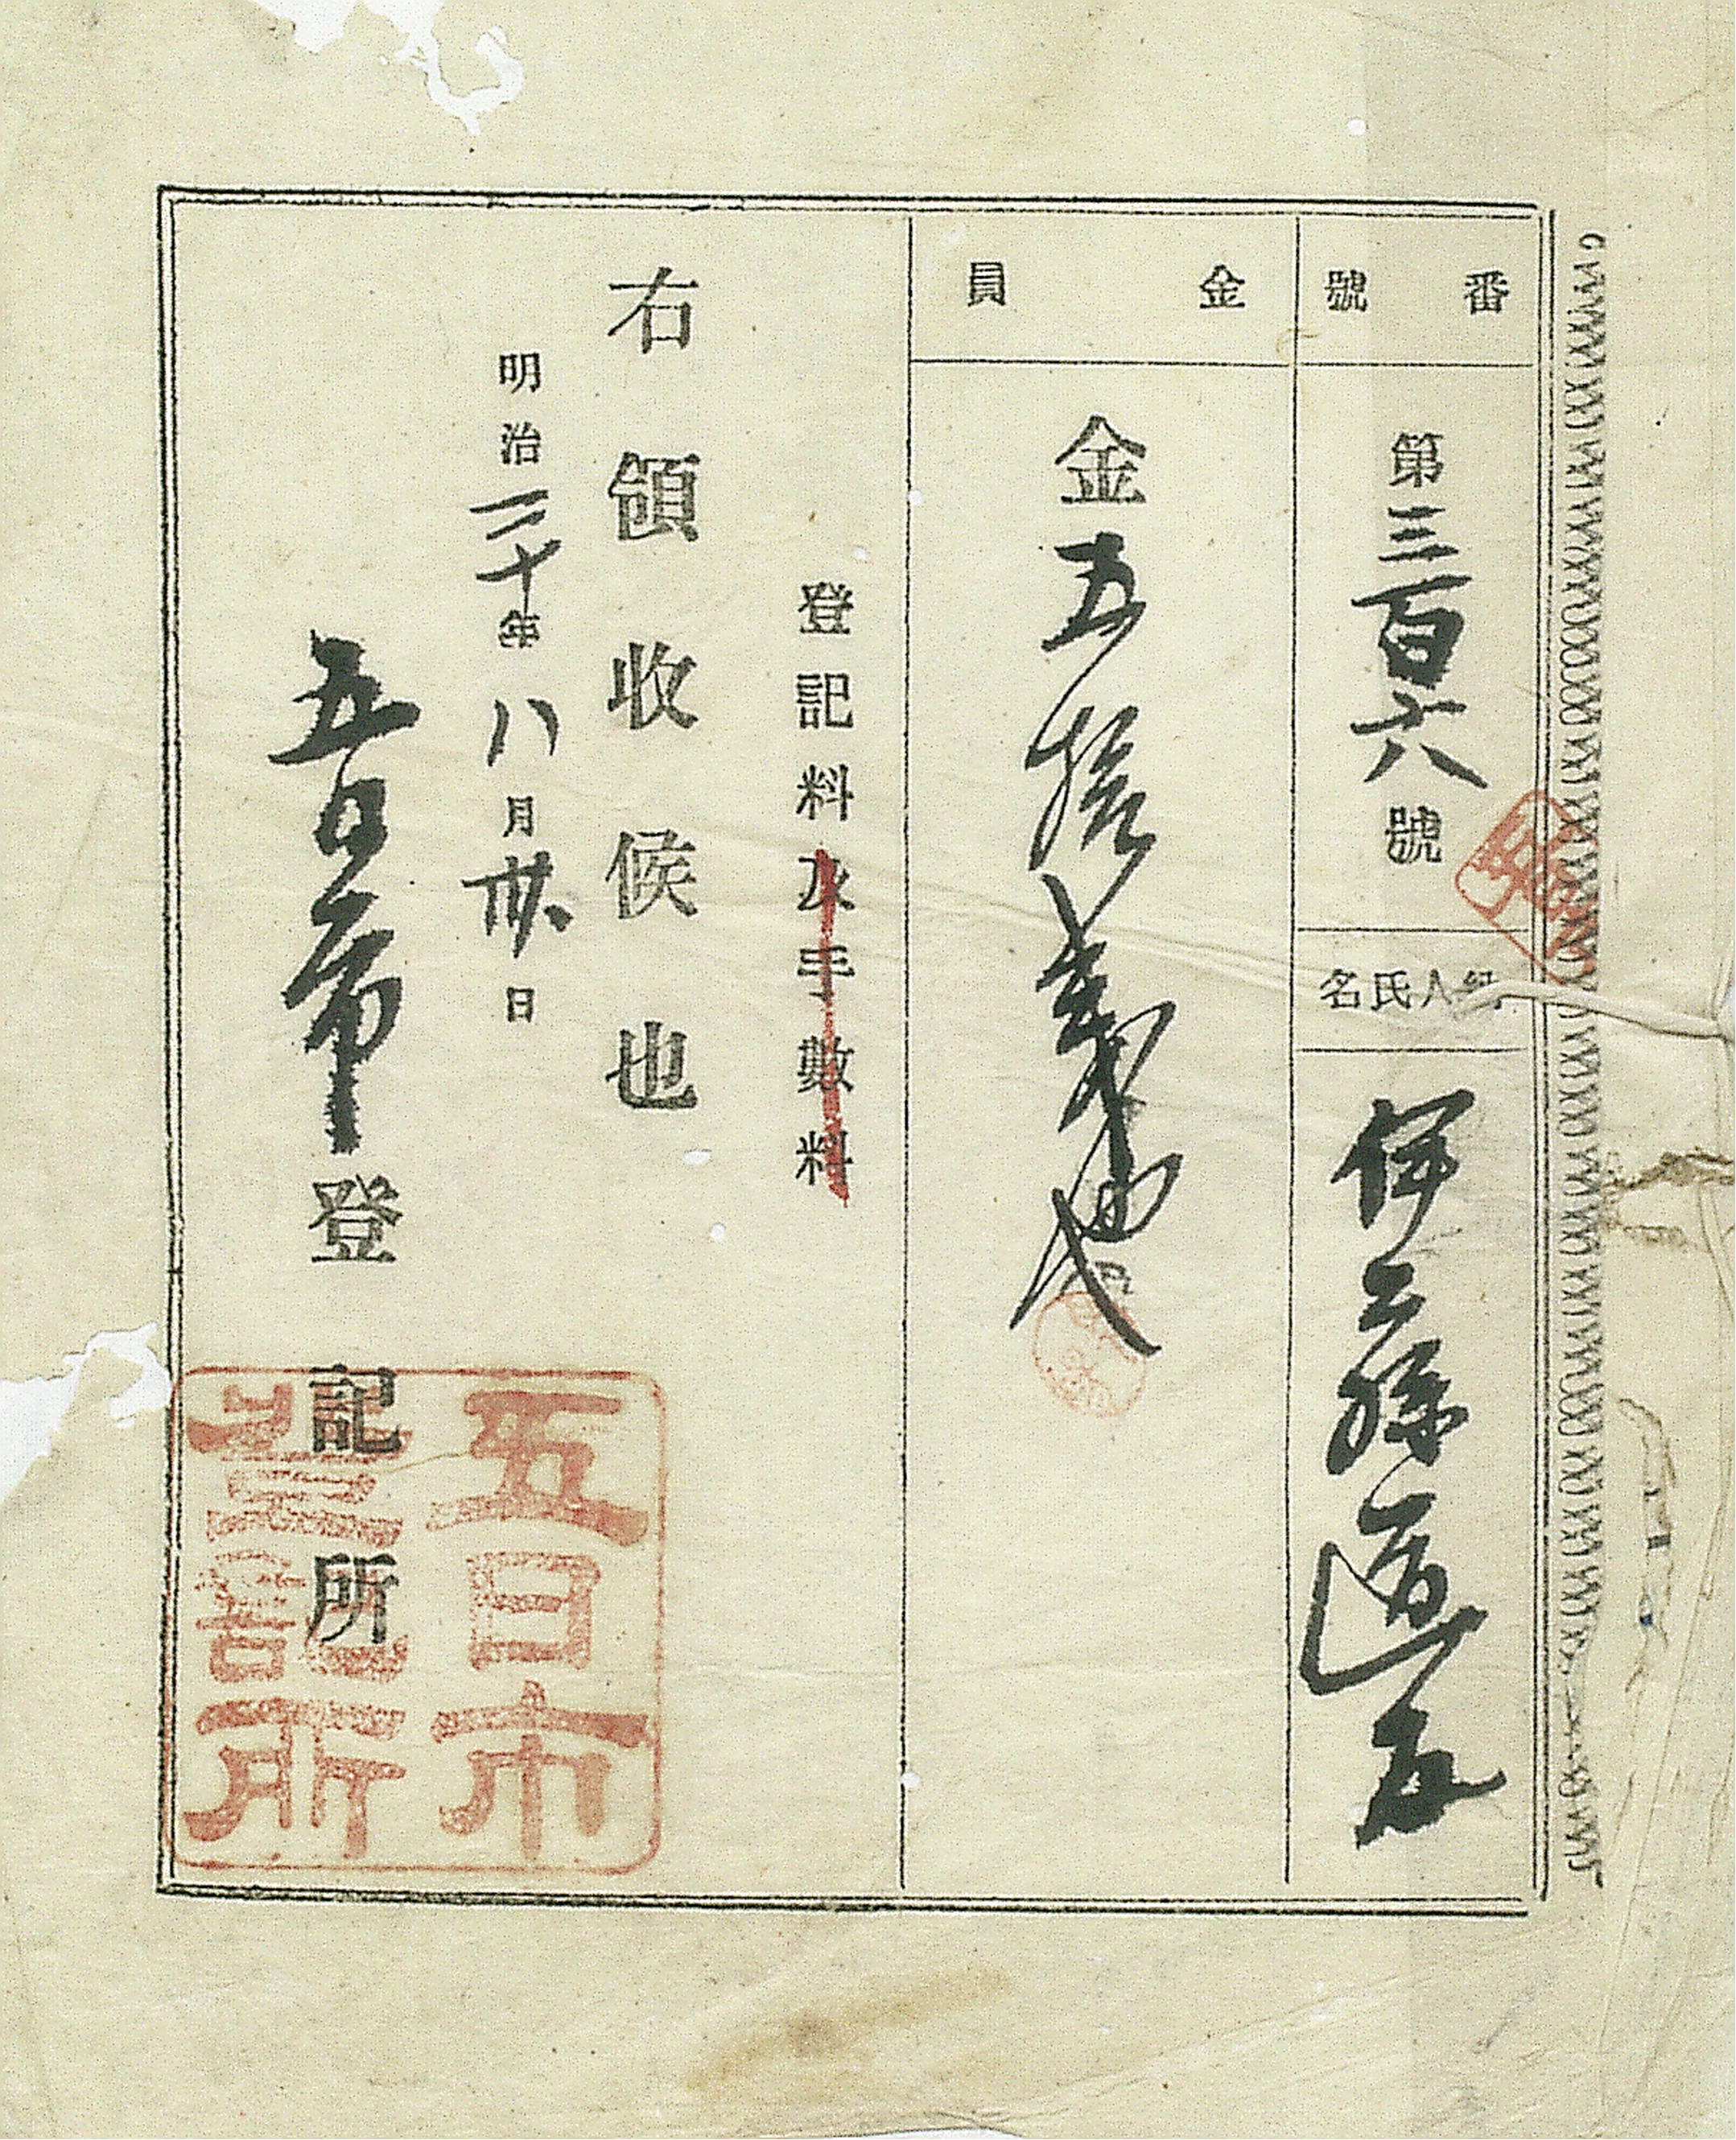 番號 第三百六號 納人氏名
金員 金五拾
登記料及手數料
右領收候也
明治二十年八月卅日
五日市登記所
五日市
登記所